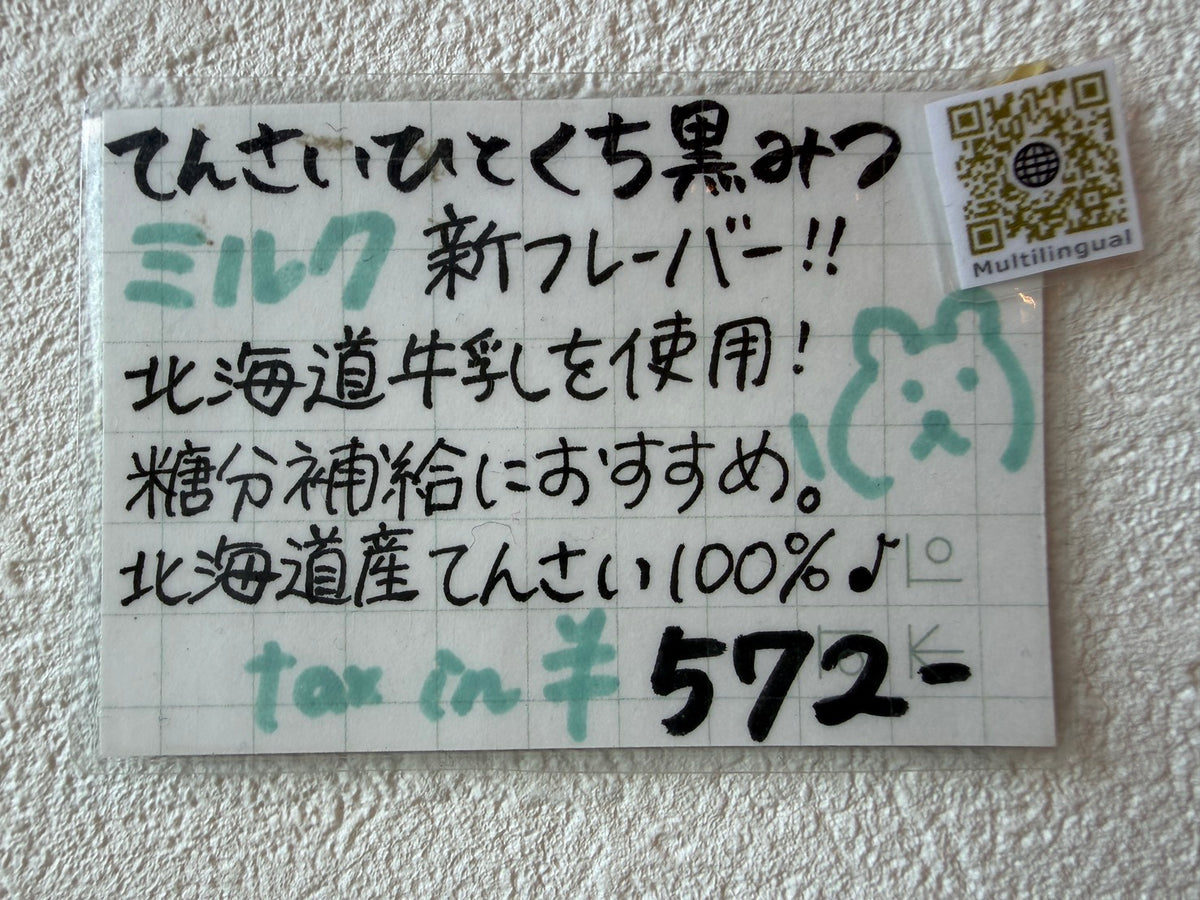 てんさいひとくち黒みつ
ミルク 新フレーバー!!
北海道牛乳を使用!
糖分補給におすすめ。
北海道産てんさい100%♪
tax in ¥572-
Multilingual